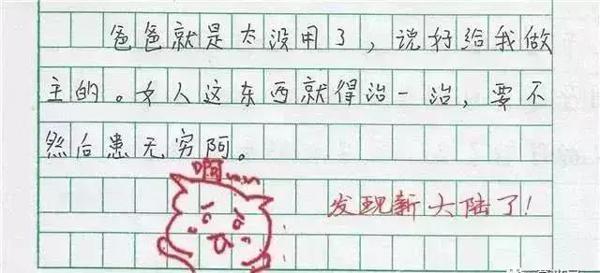 爸爸就是太没用了，说好给我做
主的。女人这东西就得治一治，要不
然后患无穷阿。
发现新大陆了！